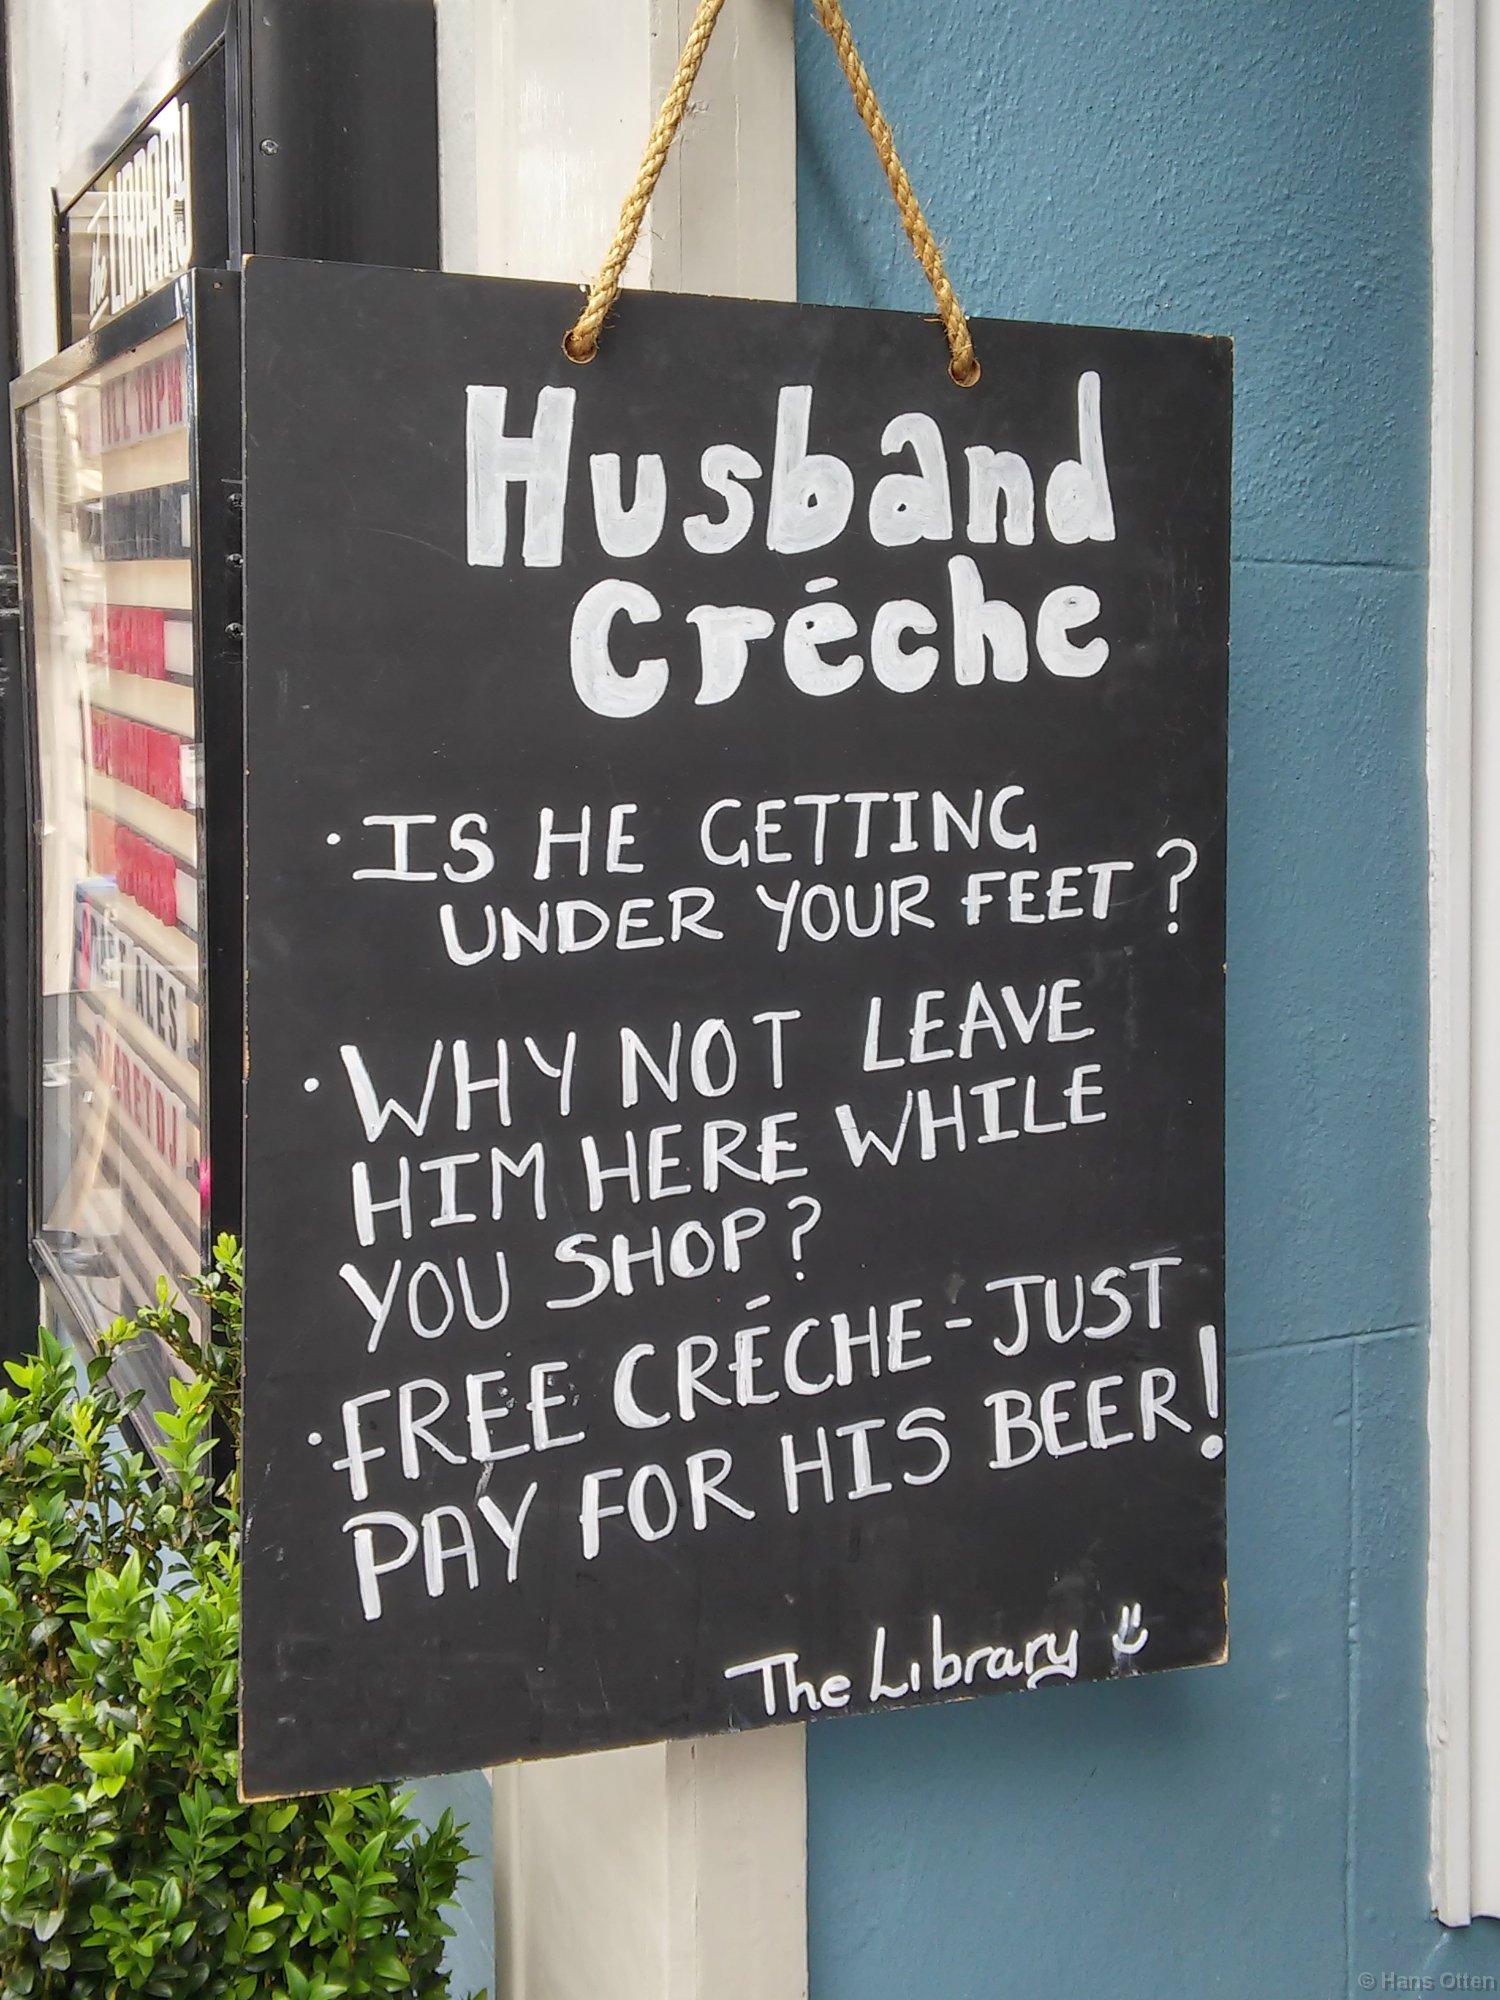 the LIBRARY
TILL 10PM
ALES
Husband
Créche
· IS HE GETTING
UNDER YOUR FEET?
· WHY NOT LEAVE
HIM HERE WHILE
YOU SHOP?
· FREE CRÉCHE - JUST
PAY FOR HIS BEER!
The Library
© Hans Otten